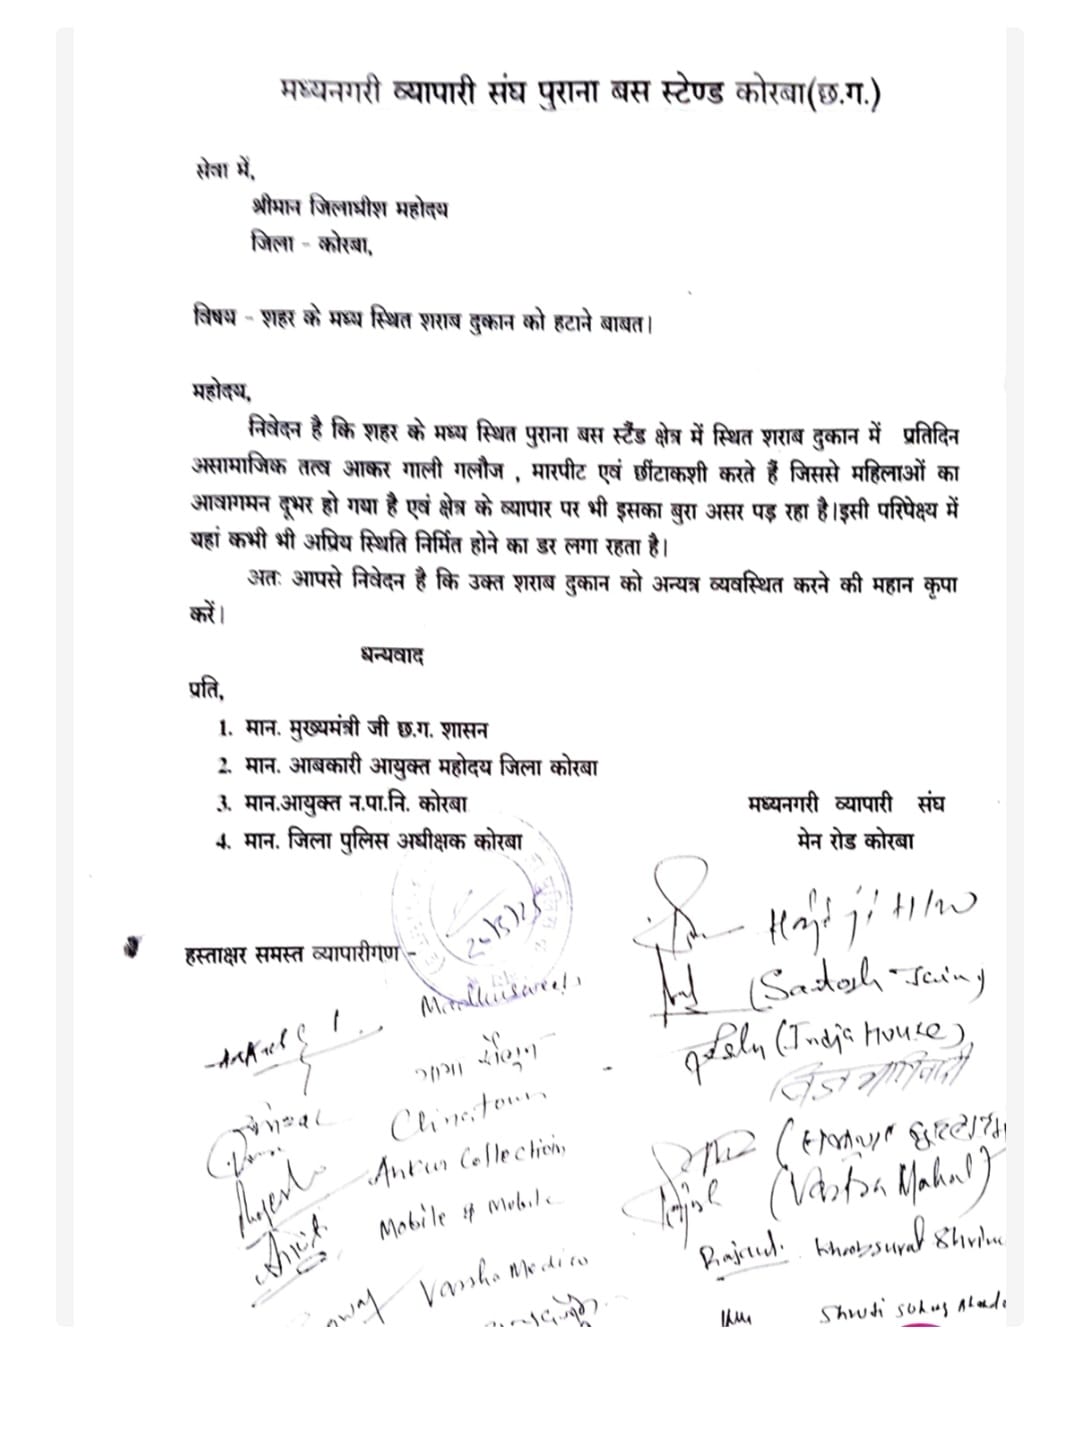 मध्यनगरी व्यापारी संघ पुराना बस स्टेण्ड कोरबा(छ.ग.)
सेवा में,
श्रीमान जिलाधीश महोदय
जिला - कोरबा,
विषय - शहर के मध्य स्थित शराब दुकान को हटाने बाबत।
महोदय,
निवेदन है कि शहर के मध्य स्थित पुराना बस स्टैंड क्षेत्र में स्थित शराब दुकान में प्रतिदिन
असामाजिक तत्व आकर गाली गलौज , मारपीट एवं छींटाकशी करते हैं जिससे महिलाओं का
आवागमन दूभर हो गया है एवं क्षेत्र के व्यापार पर भी इसका बुरा असर पड़ रहा है।इसी परिपेक्ष्य में
यहां कभी भी अप्रिय स्थिति निर्मित होने का डर लगा रहता है।
अतः आपसे निवेदन है कि उक्त शराब दुकान को अन्यत्र व्यवस्थित करने की महान कृपा
करें।
धन्यवाद
प्रति,
1. मान. मुख्यमंत्री जी छ.ग. शासन
2. मान. आबकारी आयुक्त महोदय जिला कोरबा
3. मान.आयुक्त न.पा.नि. कोरबा
4. मान. जिला पुलिस अधीक्षक कोरबा
मध्यनगरी व्यापारी संघ
मेन रोड कोरबा
हस्ताक्षर समस्त व्यापारीगण -
(Santosh Jain)
(India House)
Chinatown
Collection
(Vastra Mahal)
Mobile & Mobile
Rajesh
Ankit
Varsha Medico